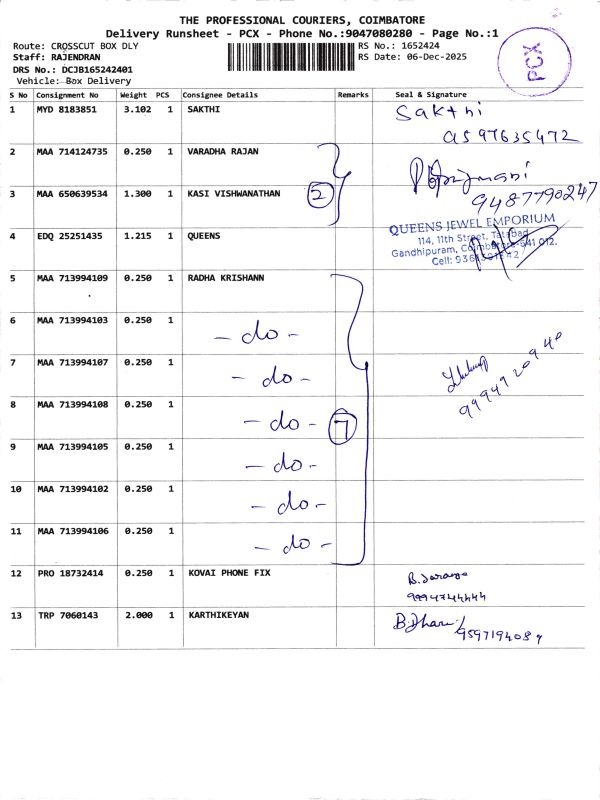 THE PROFESSIONAL COURIERS, COIMBATORE
Delivery Runsheet - PCX - Phone No.:9047080280 - Page No.:1
Route: CROSSCUT BOX DLY
Staff: RAJENDRAN
DRS No.: DCJB165242401
Vehicle: Box Delivery
RS No.: 1652424
RS Date: 06-Dec-2025
PCX
S No Consignment No Weight PCS Consignee Details Remarks Seal & Signature
1 MYD 8183851 3.102 1 SAKTHI Sakthi
9597635472
2 MAA 714124735 0.250 1 VARADHA RAJAN
3 MAA 650639534 1.300 1 KASI VISHWANATHAN 2 9487790247
4 EDQ 25251435 1.215 1 QUEENS
QUEENS JEWEL EMPORIUM
114, 11th Street, Tatabad
Gandhipuram, Coimbatore-641 012.
Cell:
5 MAA 713994109 0.250 1 RADHA KRISHANN
6 MAA 713994103 0.250 1 - do -
7 MAA 713994107 0.250 1 - do -
9994920940
8 MAA 713994108 0.250 1 - do - 7
9 MAA 713994105 0.250 1 - do -
10 MAA 713994102 0.250 1 - do -
11 MAA 713994106 0.250 1 - do -
12 PRO 18732414 0.250 1 KOVAI PHONE FIX
9994744444
13 TRP 7060143 2.000 1 KARTHIKEYAN